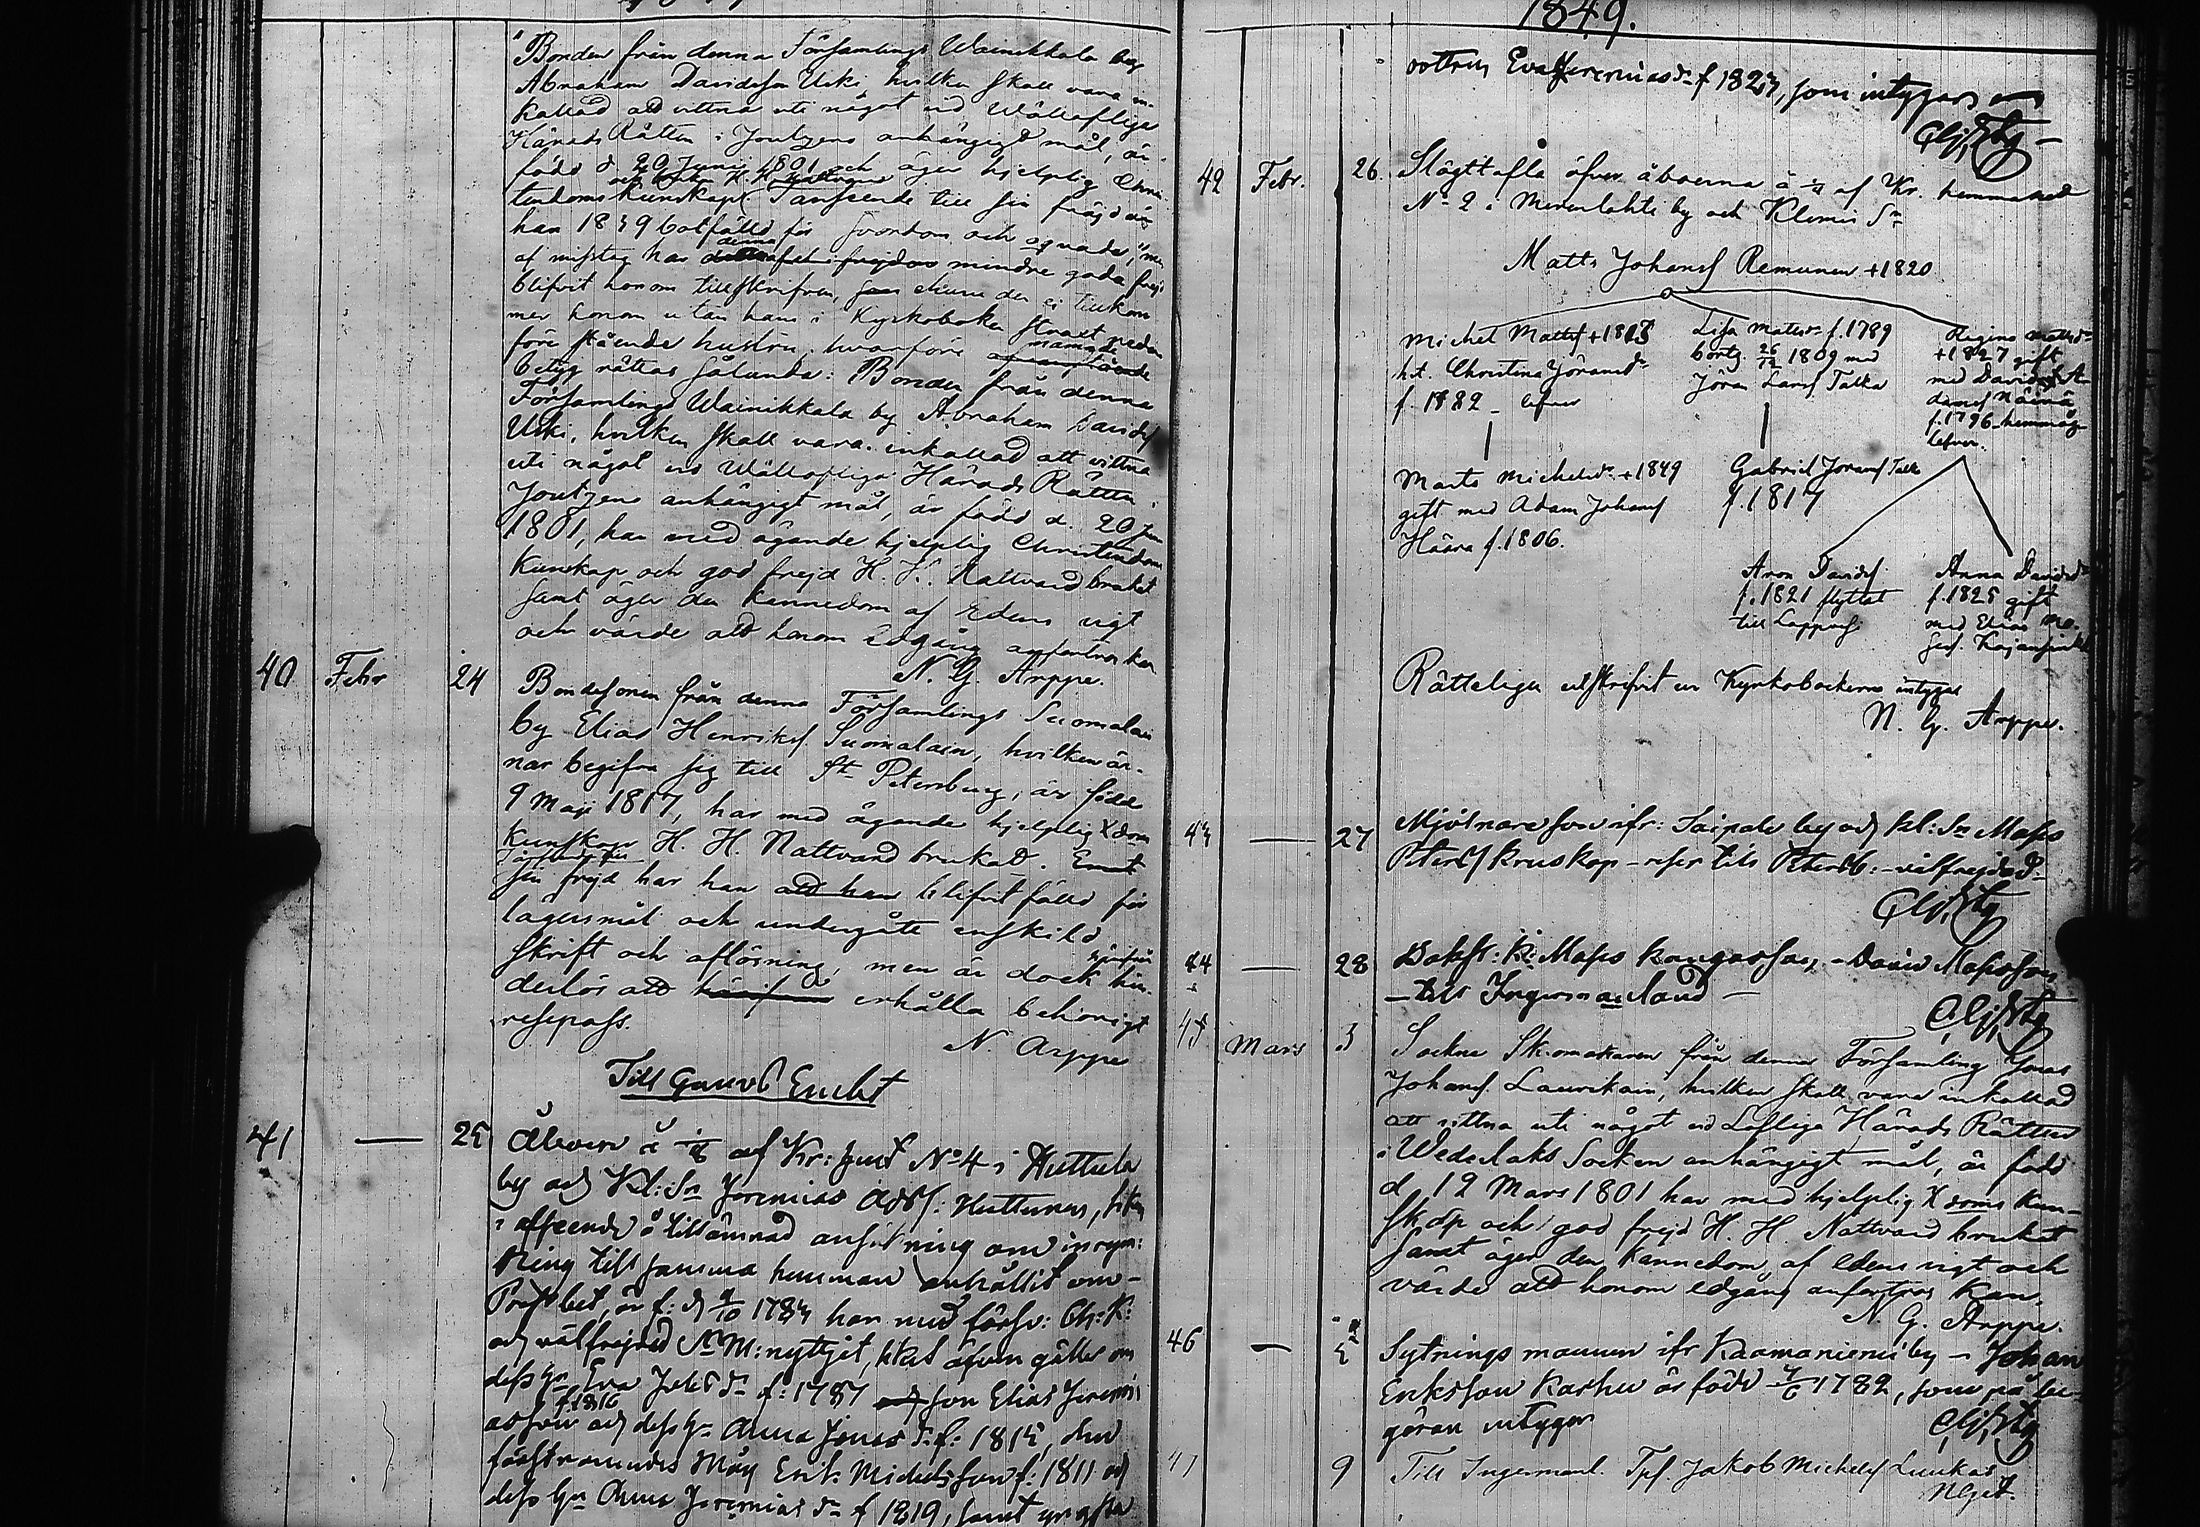 Bonden från denna Församlings Wainikkala by
Abraham Davidsson Uski, hvilken skall vara in-
kallad att vittna uti något vid Wällofliga
Härads Rätten i Joutzeno anhängigt mål, är
född d 20 Junii 1801 och äger hjelplig Christ-
endoms Kunskap. I anseende till sin fräjd är
han 1839 botfälld för svordom och oqvade, men
af misstag har denna mindre goda frejd
blifvit honom tillskrifven, ehuru den ej tillkom
mer honom utan hans i Kyrkoboken straxt nedan
före stående hustru, hvarföre nämnde
betyg rättas sålunda: Bonden från denna
Församlings Wainikkala by Abraham Davidss
Uski, hvilken skall vara inkallad att vittna
uti något vid Wällofliga Härads Rätten i
Joutzeno anhängigt mål, är född d. 20 Jun
1801, har med ägande hjelplig Christendoms
Kunskap och god frejd H. H. Nattvard brukat
samt äger den kännedom af Edens vigt
och värde att honom Edgång anförtros kan
N. G. Arppe.
40 Febr 24 Bondesonen från denna Församlings Suomalais
by Elias Henrikss. Suomalain, hvilken är-
nar begifva sig till St Petersburg, är född
9 Maji 1817, har med ägande hjelplig Xdoms
Kunskap H. H. Nattvard brukad.
sin frejd har han att han blifvit fälld för
lägersmål och undergått enskild
skrift och aflösning, men är dock hin-
derlös att erhålla behörigt
respass.
N. Arppe
41 — 25 Åboen å af Kr: hemt No 4 i Huttula
by och Kl: Sn Jeremias Adss: Huttunen,
i afseende å tillämnad ansökning om inrym:
ning till samma hemman anhållit om
Prestbet, är f: d 9/10 1783 har med försv: Ch: K:
och välfrejdad N: M: nyttjat, äfven gäller om
dess hu Eva Jakobsdr f: 1787 son Elias Jeremi
asson f 1816 och dess hu Anna Jonasdr f: 1815, den
förstnämndes Måg Erik Michelsson f: 1811 och
dess hu Anna Jeremiasdr f 1819, samt yngsta
1849.
dottren Eva Jeremiasdr f 1823, som intygas
42 Febr. 26 Slägttafla öfver åboerna å af Kr. hemmanet
No 2 i Merenlahti by och Klemis Sn
Matts Johanss Remunen +1820
Michel Mattss +1813
h:t. Christina Göransdr
f. 1882 lefver
Lisa Mattsdr f. 1789
bortg. 26/12 1809 med
Jöran Larss Talka
Regina Mattsdr
+1827 gift
med David A-
damss
f. 1796 hemmåg
lefver.
Marta Michelsdr +1849
gift med Adam Johanss
Häära f. 1806.
Gabriel Jöranss Talka
f. 1817
Aron Davidss
f. 1821 flyttat
till Lappvesi
Anna Davidsdr
f. 1825 gift
med Elias
Rätteligen utskrifvit ur Kyrkoböckerne intygar
N. G. Arppe.
43 — 27 Mjölnaresonen ifr: Saipale by och Kl: Sn Mats
Peterss Kruskop – reser till Petersb: – välfrejdad –
44 — 28 Mats Kangassa, – David Matsson
– till Ingermanland –
45 Mars 3 Sockne Skomakaren från denna Församling Jonas
Johanss. Laurikain, hvilken skall vara inkallad
att vittna uti något vid Lofliga Härads Rätten
i Wederlaks Socken anhängigt mål, är född
d. 12 Mars 1801 har med hjelplig Xdoms Kun-
skap och god frejd H. H. Nattvard brukat
samt äger den kännedom af edens vigt och
värde att honom edgång anförtros kan.
N. G. Arppe.
46 — 5 Sytningsmannen ifr Kaamaniemi by – Johan
Eriksson Karhu är född 1782, som på be-
gäran intygar
47 9 Till Ingermanl. Tpf. Jakob Michelss Luukas